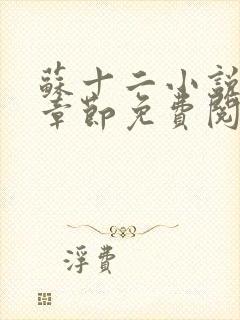 蘇十二小說
章節免費閱
浮費